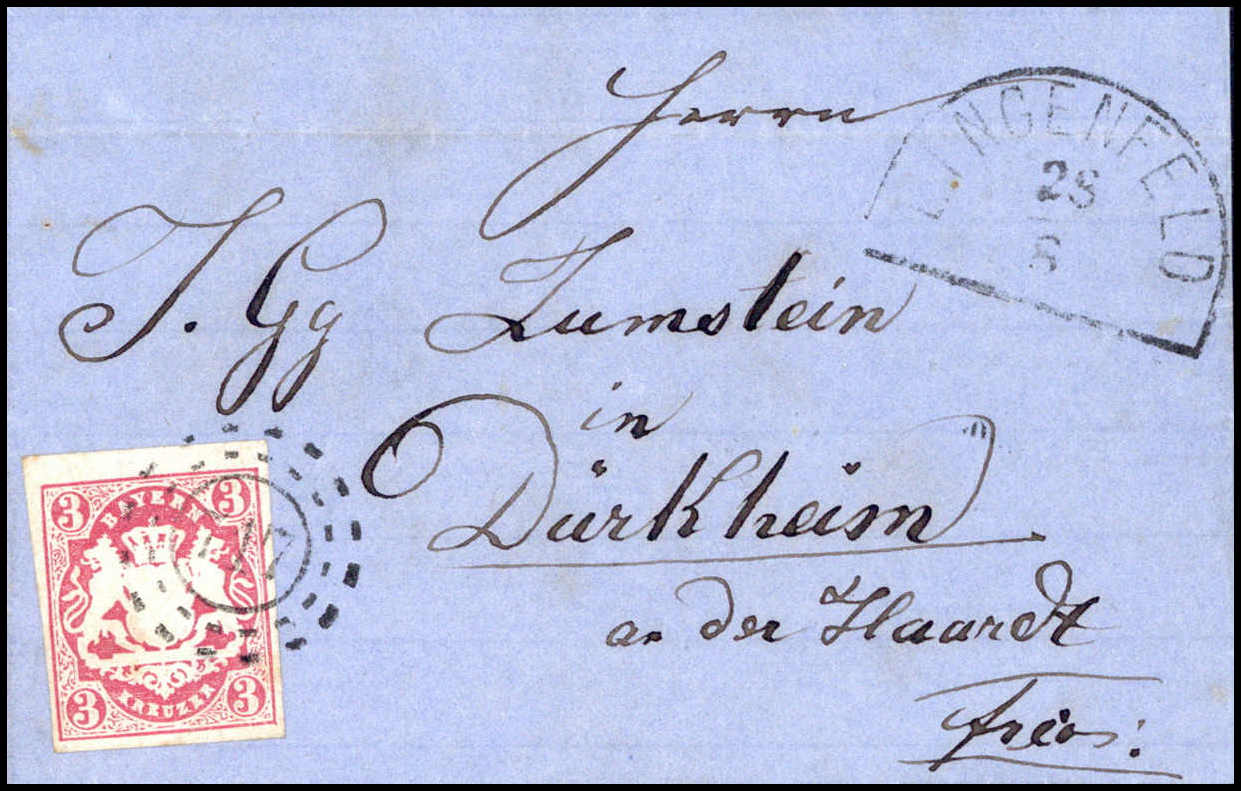 Herrn
LINGENFELD
28
6
J. Gg Zumstein
in
Dürkheim
an der Haardt
frei
3 3
BAYERN
KREUZER
3 3